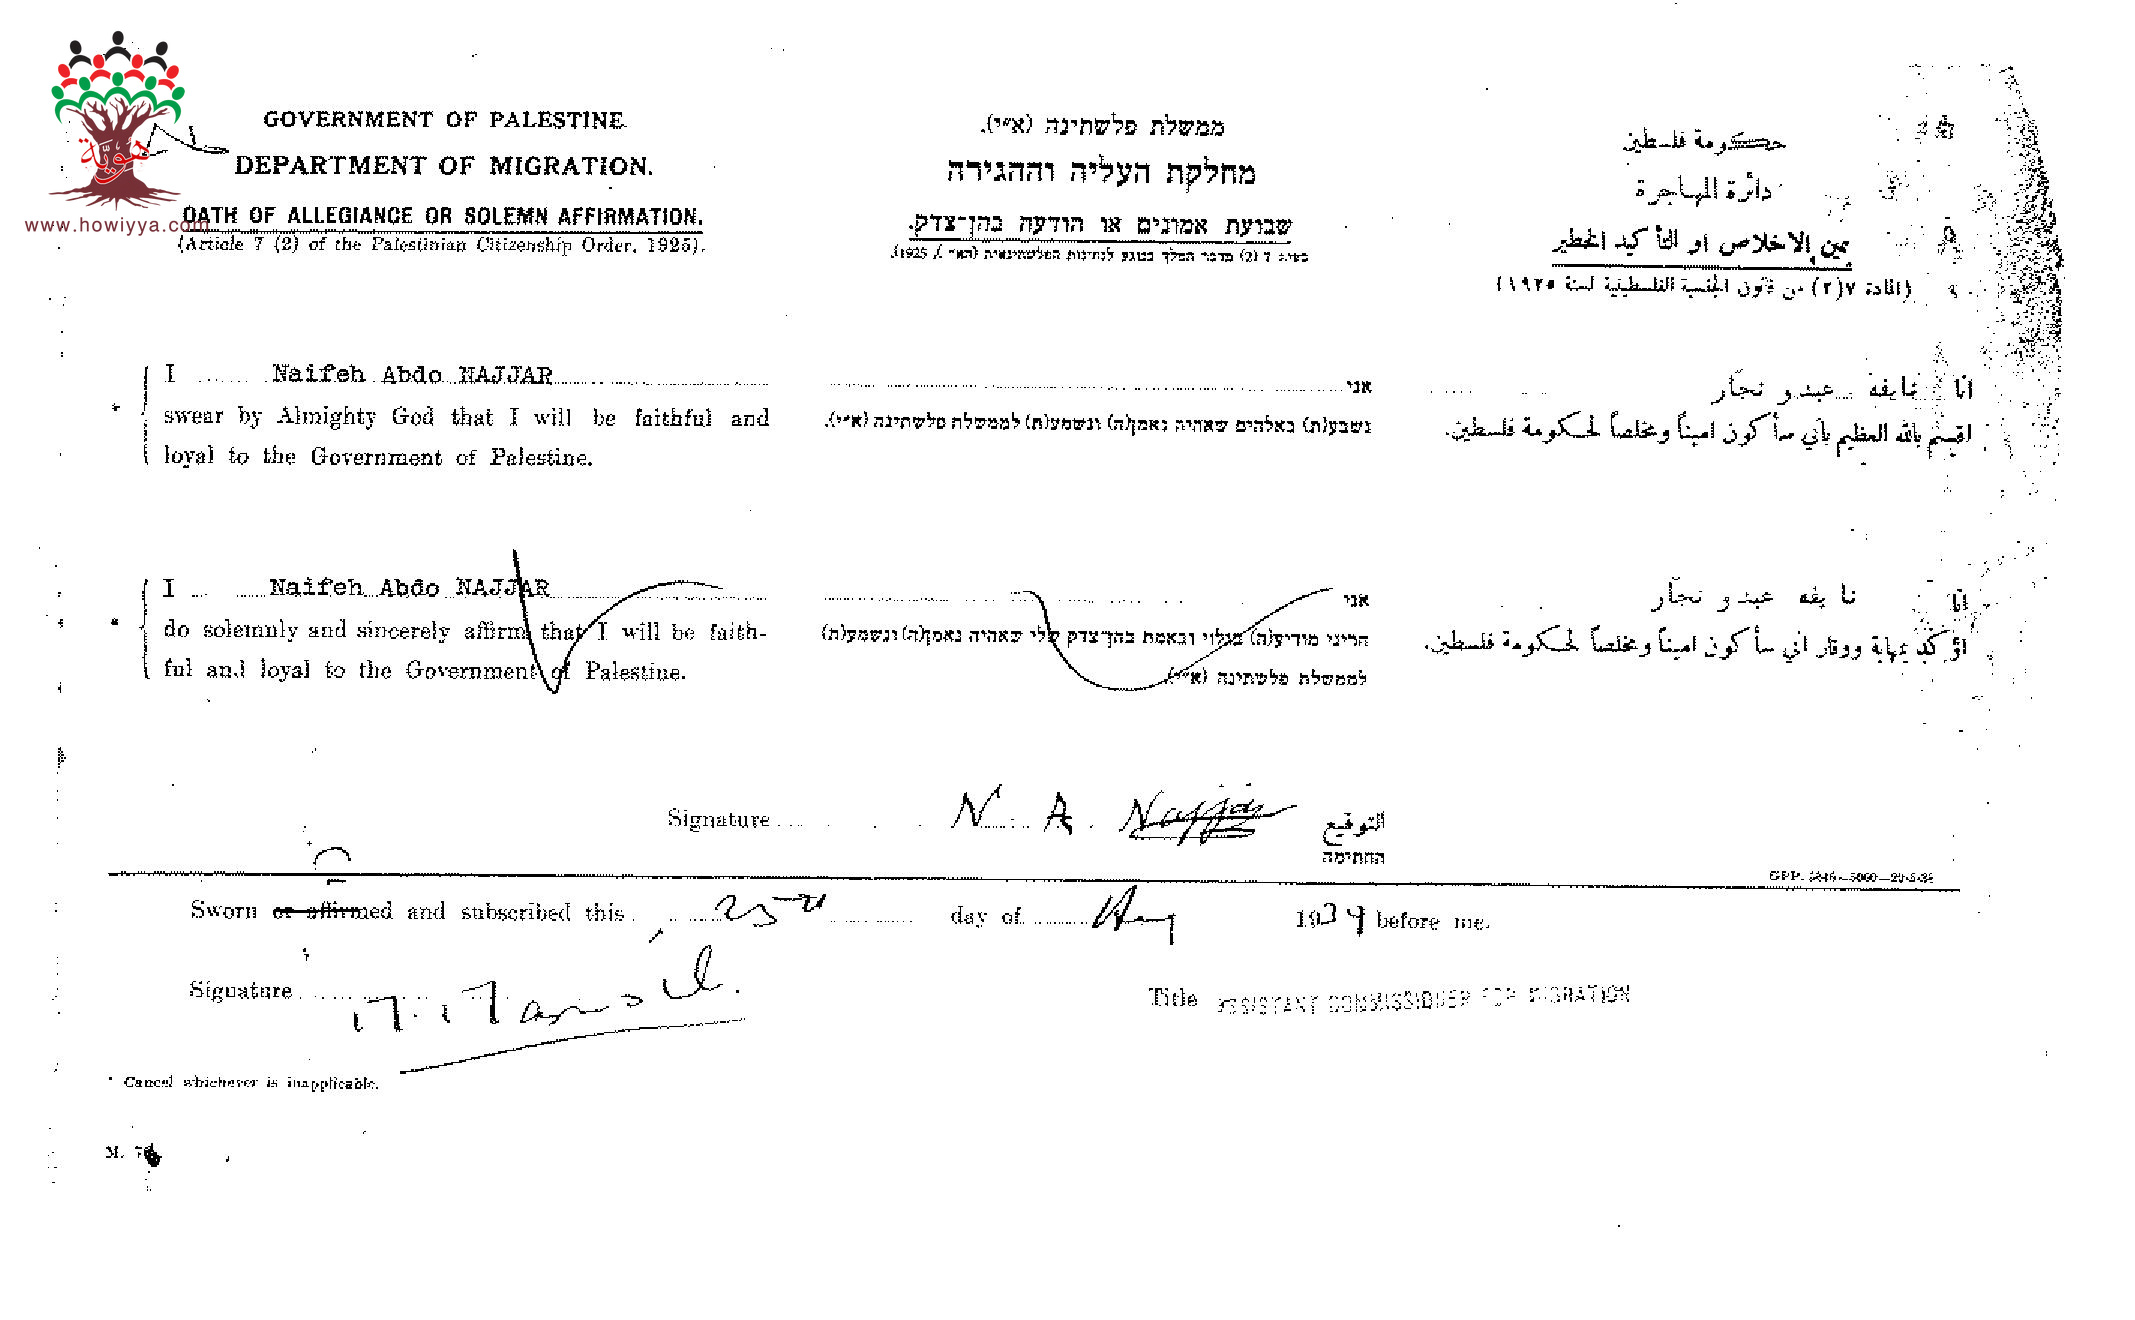 هوية
www.howiyya.com
GOVERNMENT OF PALESTINE.
DEPARTMENT OF MIGRATION.
OATH OF ALLEGIANCE OR SOLEMN AFFIRMATION.
(Article 7 (2) of the Palestinian Citizenship Order, 1925).
ממשלת פלשתינה (א״י).
מחלקת העליה וההגירה
שבועת אמונים או הודעה בהן־צדק.
حكومة فلسطين
دائرة المهاجرة
يمين الاخلاص او التأكيد الخطير
(المادة ٧(٢) من قانون الجنسية الفلسطينية لسنة ١٩٢٥)
I Naifeh Abdo NAJJAR
* swear by Almighty God that I will be faithful and
loyal to the Government of Palestine.
אני
נשבע(ת) באלהים שאהיה נאמן(ה) ונשמע(ת) לממשלת פלשתינה (א״י).
انا نايفه عبدو نجّار
اقسم بالله العظيم بأني سأكون اميناً ومخلصاً لحكومة فلسطين.
I Naifeh Abdo NAJJAR
* do solemnly and sincerely affirm that I will be faith-
ful and loyal to the Government of Palestine.
אני
הריני מודיע(ה) בגלוי ובאמת בהן־צדק שלי שאהיה נאמן(ה) ונשמע(ת)
לממשלת פלשתינה (א״י).
انا نايفه عبدو نجّار
اؤكد بمهابة ووقار اني سأكون اميناً ومخلصاً لحكومة فلسطين.
Signature N. A. Najjar التوقيع
החתימה
Sworn or affirmed and subscribed this 25th day of 1939 before me.
Signature
Title ASSISTANT COMMISSIONER FOR MIGRATION
* Cancel whichever is inapplicable.
M.